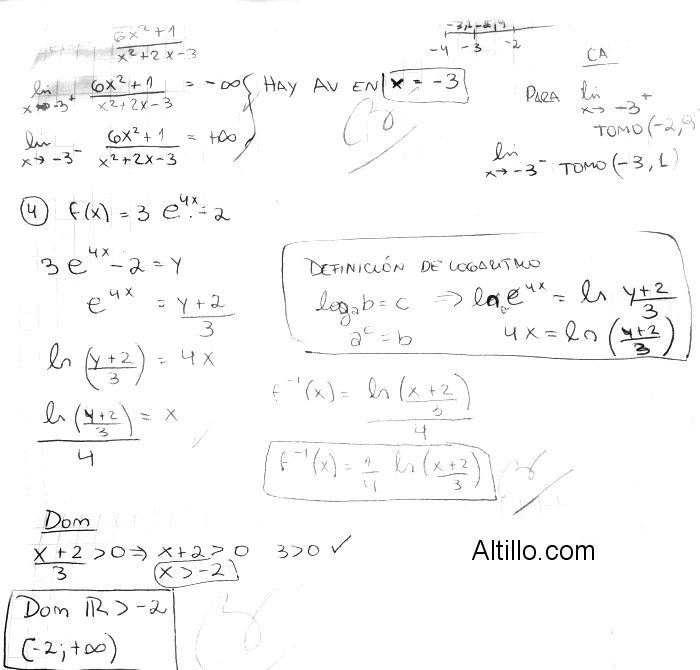 6x²+1 / x²+2x-3
-3,1 -2,9
-4 -3 -2
CA
lim x→-3⁺ 6x²+1 / x²+2x-3 = -∞
lim x→-3⁻ 6x²+1 / x²+2x-3 = +∞
} HAY AV EN x = -3
PARA lim x→-3⁺
TOMO (-2,9
lim x→-3⁻ TOMO (-3,1)
④ f(x) = 3 e^4x - 2
3 e^4x - 2 = y
e^4x = y+2 / 3
ln (y+2 / 3) = 4x
ln (y+2 / 3) / 4 = x
DEFINICIÓN DE LOGARITMO
log_a b = c ⇒ ln e^4x = ln y+2 / 3
a^c = b 4x = ln (y+2 / 3)
f⁻¹(x) = ln (x+2 / 3) / 4
f⁻¹(x) = 1/4 ln (x+2 / 3)
Dom
x+2 / 3 > 0 ⇒ x+2 > 0 3>0 ✓
x > -2
Dom ℝ > -2
(-2; +∞)
Altillo.com